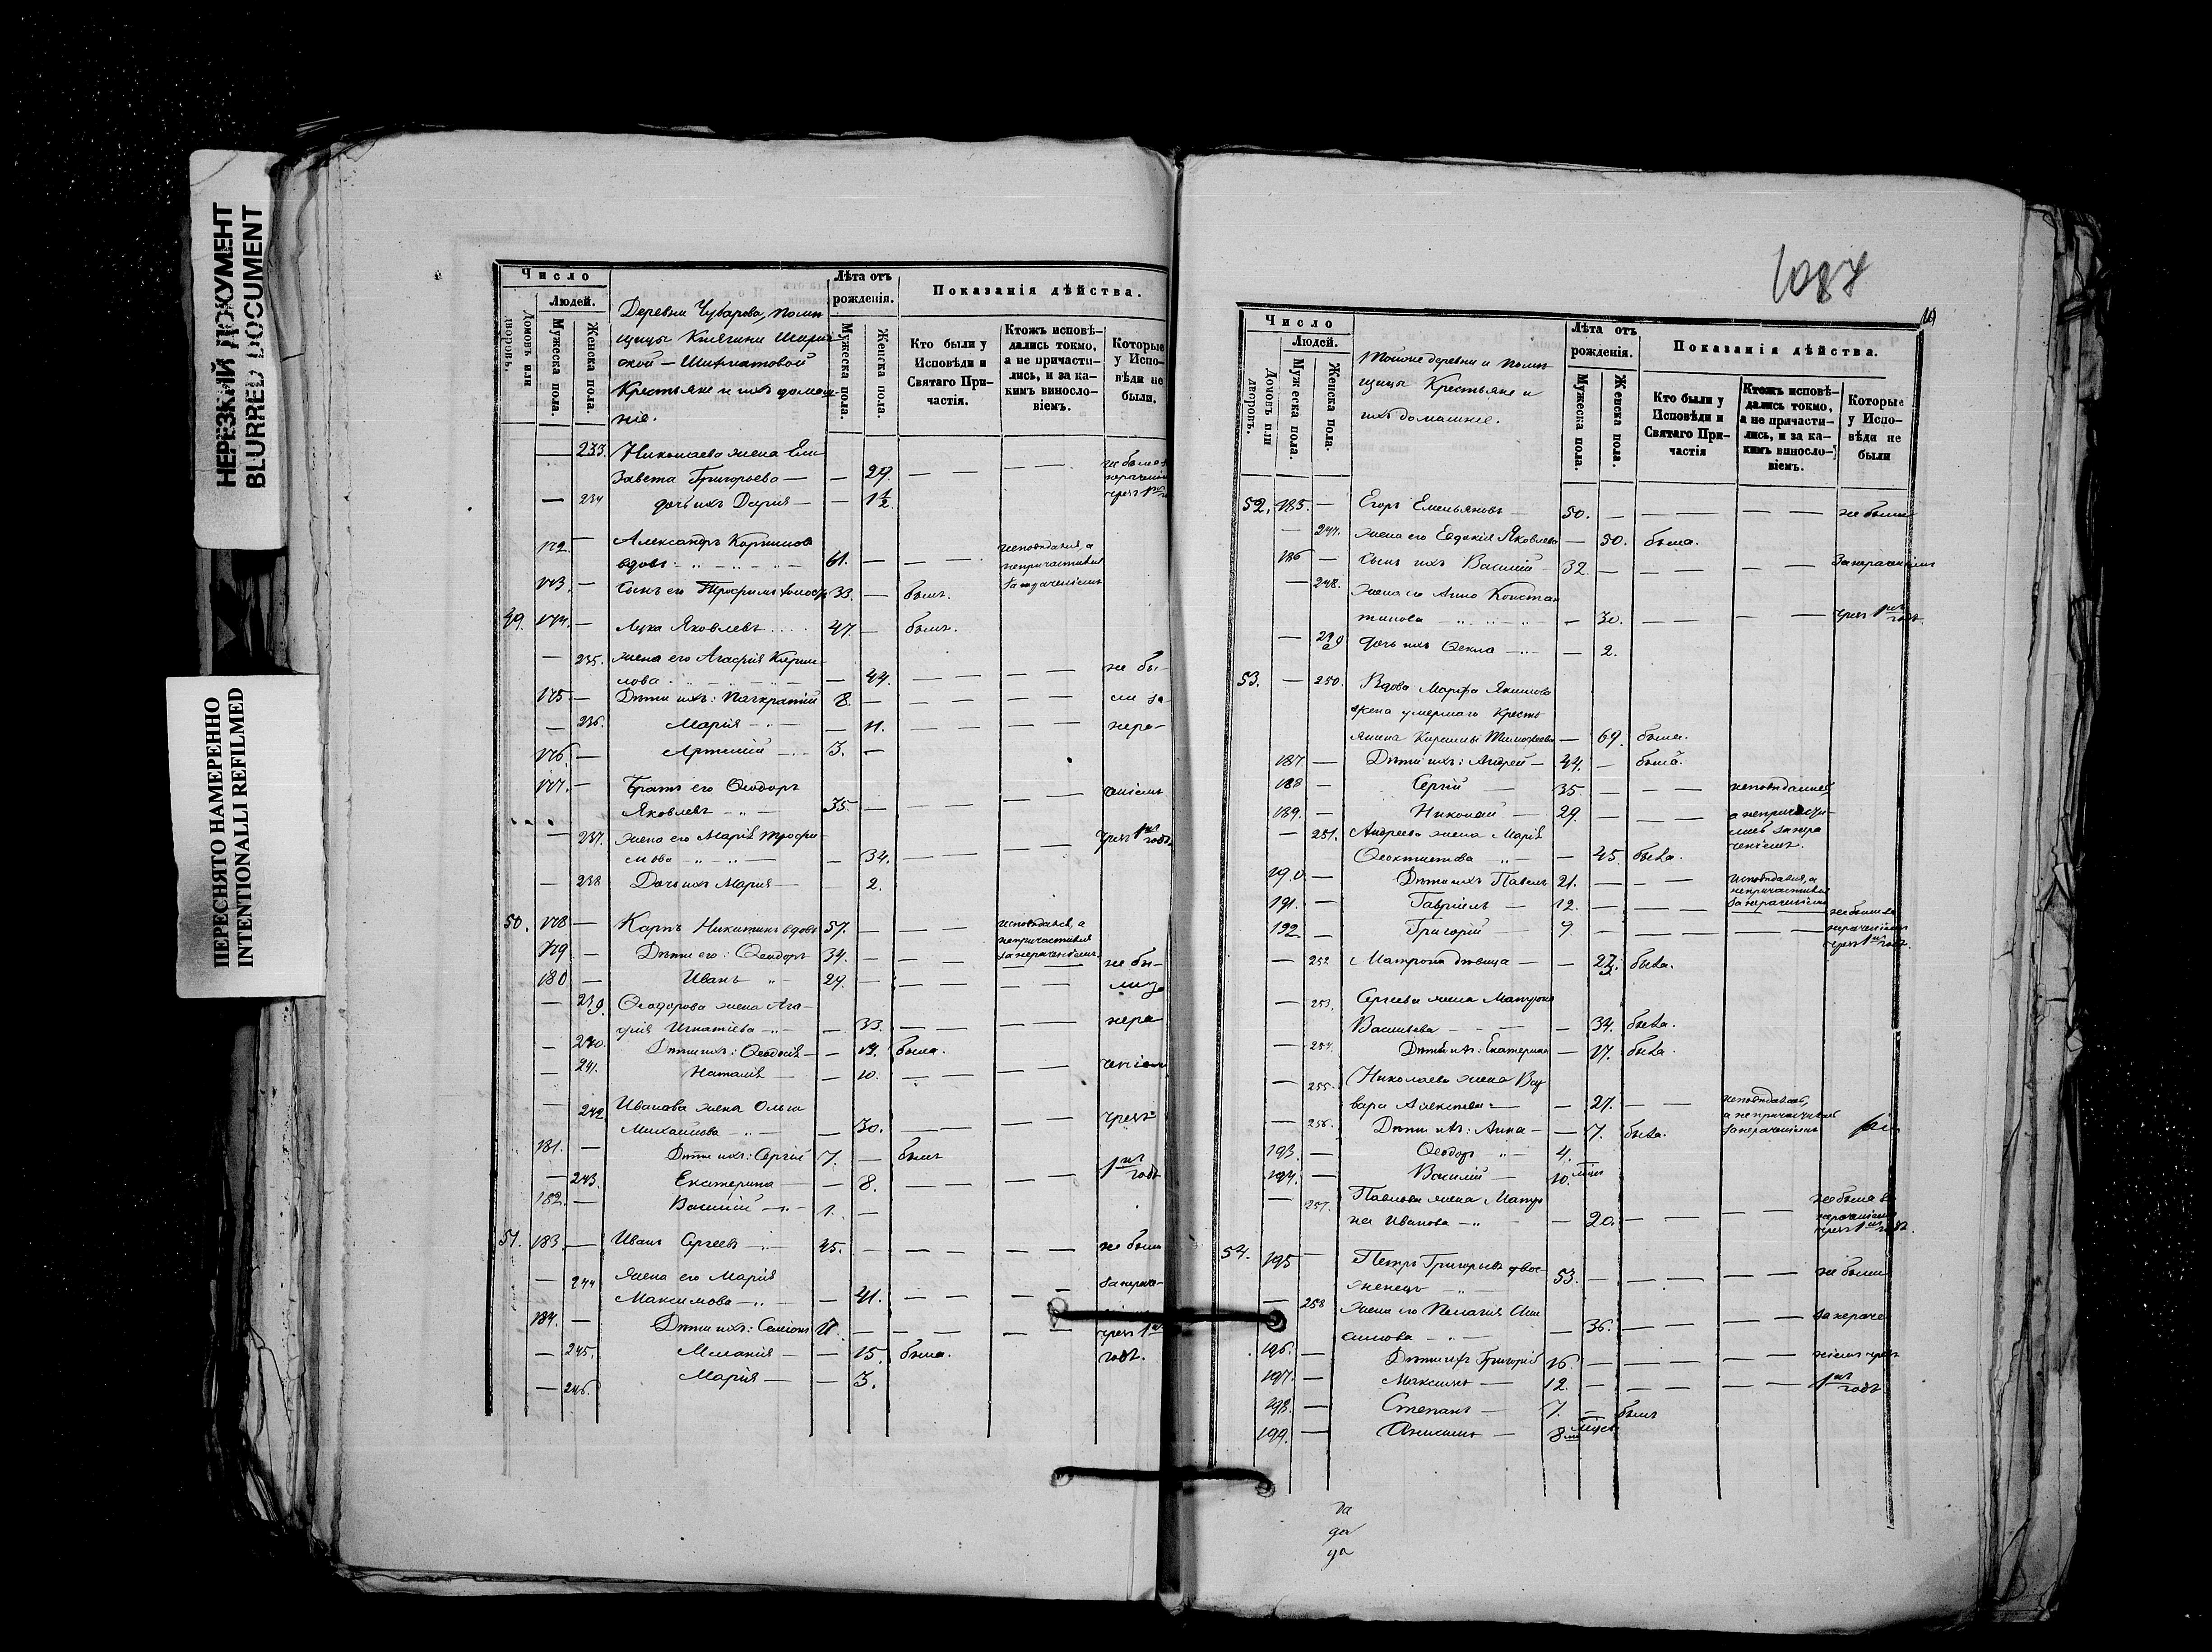 НЕРЕЗКИЙ ДОКУМЕНТ
BLURRED DOCUMENT
ПЕРЕСНЯТО НАМЕРЕННО
INTENTIONALLI REFILMED
Число
Людей.
Домовъ или дворовъ.
Мужеска пола.
Женска пола.
Деревни Чубарова, помѣ
щицы Княгини
ской – Шихматовой
Крестьяне и ихъ домаш-
нiе.
Лѣта отъ
рожденiя.
Мужеска пола.
Женска пола.
Показанiя дѣйства.
Кто были у
Исповѣди и
Святаго При-
частiя.
Ктожъ исповѣ-
дались токмо,
а не причасти-
лись, и за ка-
кимъ винословiемъ.
Которые
у Испо-
вѣди не
были.
— 233. Николаева жена Ели
завета Григорьева — — 29. — — — —
— 234 дочь ихъ Дарiя — — 1½
172. — Александръ
вдовъ 61. — — — исповѣдался, а
непричастился
за нераченiемъ
173. — Сынъ его Трофимъ 33. — былъ.
49. 174. — Лука Яковлевъ 47. — былъ.
— 235. жена его Агафiя Кирил
лова — 44. — — — — не бы-
175. — Дѣти ихъ: Панкратiй 8. — — — — ли за
— 236. Марiя — — 11. — — — — нера-
176. — Артемiй — 3. —
177. — Братъ его Ѳеодоръ
Яковлевъ 35. — — — — ченiемъ
— 237. жена его Марiя Трофи
мова — 34. — — — — чрезъ 1нъ годъ
— 238 Дочь ихъ Марiя — 2.
50. 178 — Карпъ Никитинъ вдовъ 57. — — — исповѣдался, а
непричастился
за нераченiемъ.
179. — Дѣти его: Ѳеодоръ 34. — — — — — не бы-
180 — Иванъ 29. — — — — — ли за
— 239. Ѳеодорова жена Ага
фiя Игнатiева — — 33. — — — — нера
— 240. Дѣти ихъ: Ѳеодосiя — — 13. была.
— 241. Наталiя — — 10. — — — — ченiем
— 242 Иванова жена Ольга
Михайлова — — 30. — — — — чрезъ
181. — Дѣти ихъ: Сергiй 7. — былъ
— 243. Екатерина — — 8. — — — — 1нъ годъ
182. — Василiй — 1. —
51. 183. — Иванъ Сергеевъ 45. — — — — — не были
— 244 жена его Марiя
Максимова — — 41. — — — — за нераче-
184. — Дѣти ихъ: Семiонъ — — — — — чрезъ 1нъ
— 245. Меланiя — — 15. была. годъ.
— 246. Марiя — — 3.
1087
Число
Людей.
Домовъ или дворовъ.
Мужеска пола.
Женска пола.
Тойже деревни и помѣ
щицы Крестьяне и
ихъ домашнiе.
Лѣта отъ
рожденiя.
Мужеска пола.
Женска пола.
Показанiя дѣйства.
Кто были у
Исповѣди и
Святаго При-
частiя
Ктожъ исповѣ-
дались токмо,
а не причасти-
лись, и за ка-
кимъ винословiемъ.
Которые
у Испо-
вѣди не
были
52. 185. — Егоръ Емельяновъ 50. — — — — — не были
— 247. жена его Евдокiя Яковлева — 50. была.
186 — Сынъ ихъ Василiй 32. — — — — — за нераченiемъ
— 248. жена его Анна Констан
тинова — 30. — — — — чрезъ 1нъ годъ.
— 249 дочь ихъ Ѳекла — — 2.
53. — 250. Вдова Марфа Якимова
жена умершаго Кресть
янина Кирилы Тимоѳеева — 69. была.
187 — Дѣти ихъ: Андрей — 44. — былъ.
188 — Сергiй 35. — — — исповѣдались,
189. — Николай — 29. — — — а непричасти-
лись за нера
ченiемъ.
— 251. Андреева жена Марiя
Ѳеоктистова — 45. была.
190 — Дѣти ихъ Павелъ 21. — — — исповѣдался, а
непричастился
за нераченiемъ
191. — Гаврiилъ — 12. — — — — —
192 — Григорiй — 9. — — — — — не были за
нераченiемъ
чрезъ 1нъ годъ.
— 252 Матрона дѣвица — — 22. была.
— 253. Сергiева жена Матрона
Васильева — 34. была.
— 254. Дѣти ихъ: Екатерина — 17. была.
— 255. Николаева жена Вар
вара Алексѣева — — 27. — — исповѣдалась,
а непричастилась
за нераченiемъ
— 256. Дѣти ихъ: Анна — — 7. была.
193. — Ѳеодоръ — 4.
194. — Василiй — 10. мцъ
— 257. Павлова жена Матро
на Иванова — — 20. — — — — не была за
нераченiемъ
чрезъ 1нъ годъ.
54. 195 — Петръ Григорьевъ двое
женецъ 53. — — — — — не были
— 258 жена его Пелагiя
симова — — 36. — — — — за нераче
196. — Дѣти ихъ Григорiй 16 — — — — — нiемъ чрезъ
197. — Максимъ — 12. — — — — — 1нъ годъ
198. — Степанъ — 7. — былъ
199. — Анисимъ — 8 мцъ